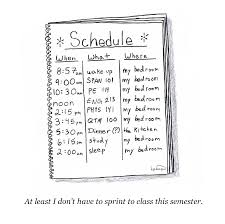 * Schedule *
When What Where
8:57am wake up my bedroom
9:00am SPAN 101 my bedroom
10:30am PE 119 my bedroom
noon ENG 213 my bedroom
2:15pm PHYS 101 my bedroom
3:45pm QTM 100 my bedroom
5:30pm Dinner (?) the Kitchen
6:15pm study my bedroom
2:00am sleep my bedroom
At least I don't have to sprint to class this semester.